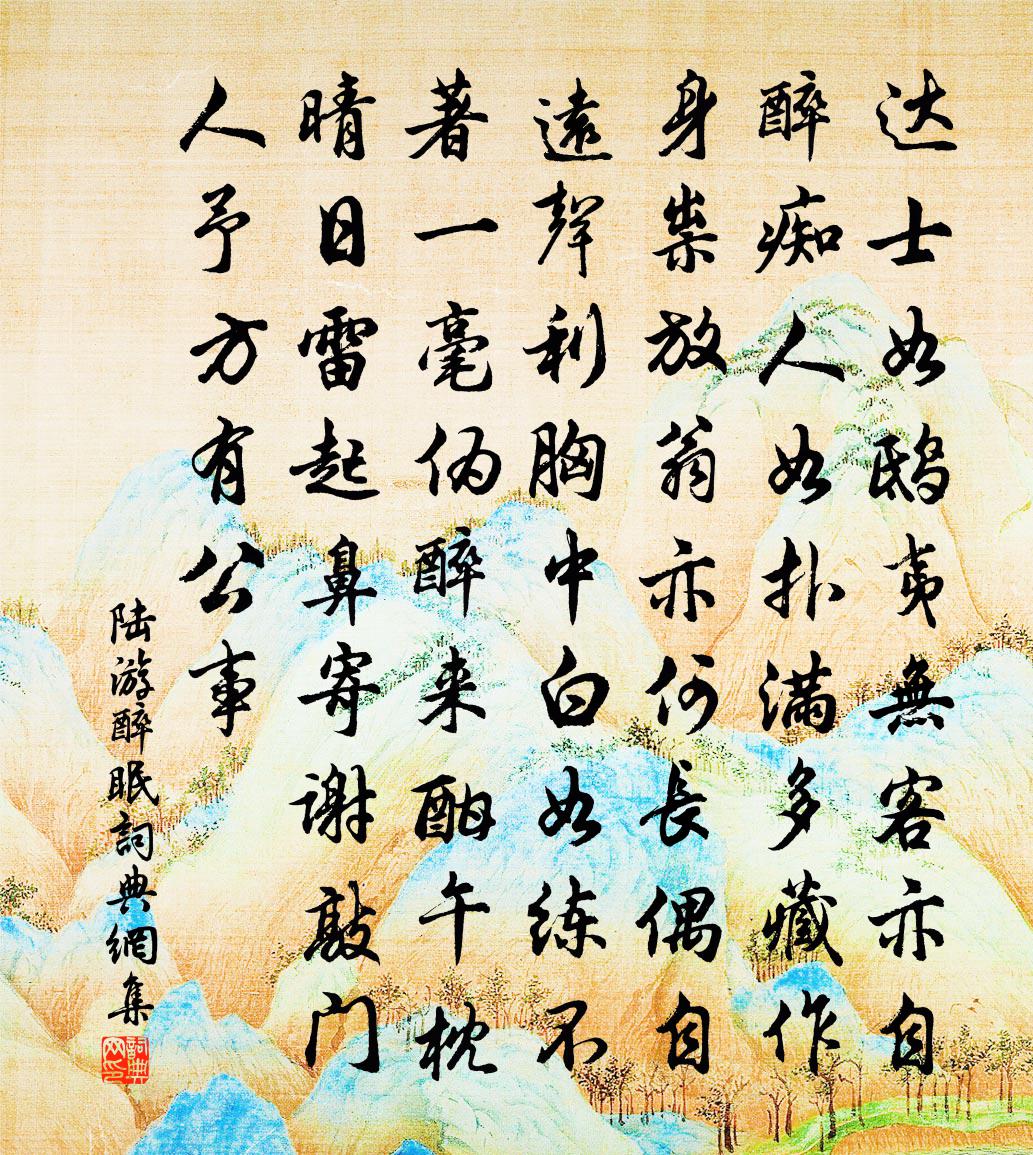 达士如鸱夷無客亦自
醉痴人如扑满多藏作
身祟放翁亦何長偶自
遠聲利胸中白如练不
著一毫伪醉来酣午枕
晴日雷起鼻寄谢敲门
人予方有公事
陆游醉眠詞典網集
詞典网印